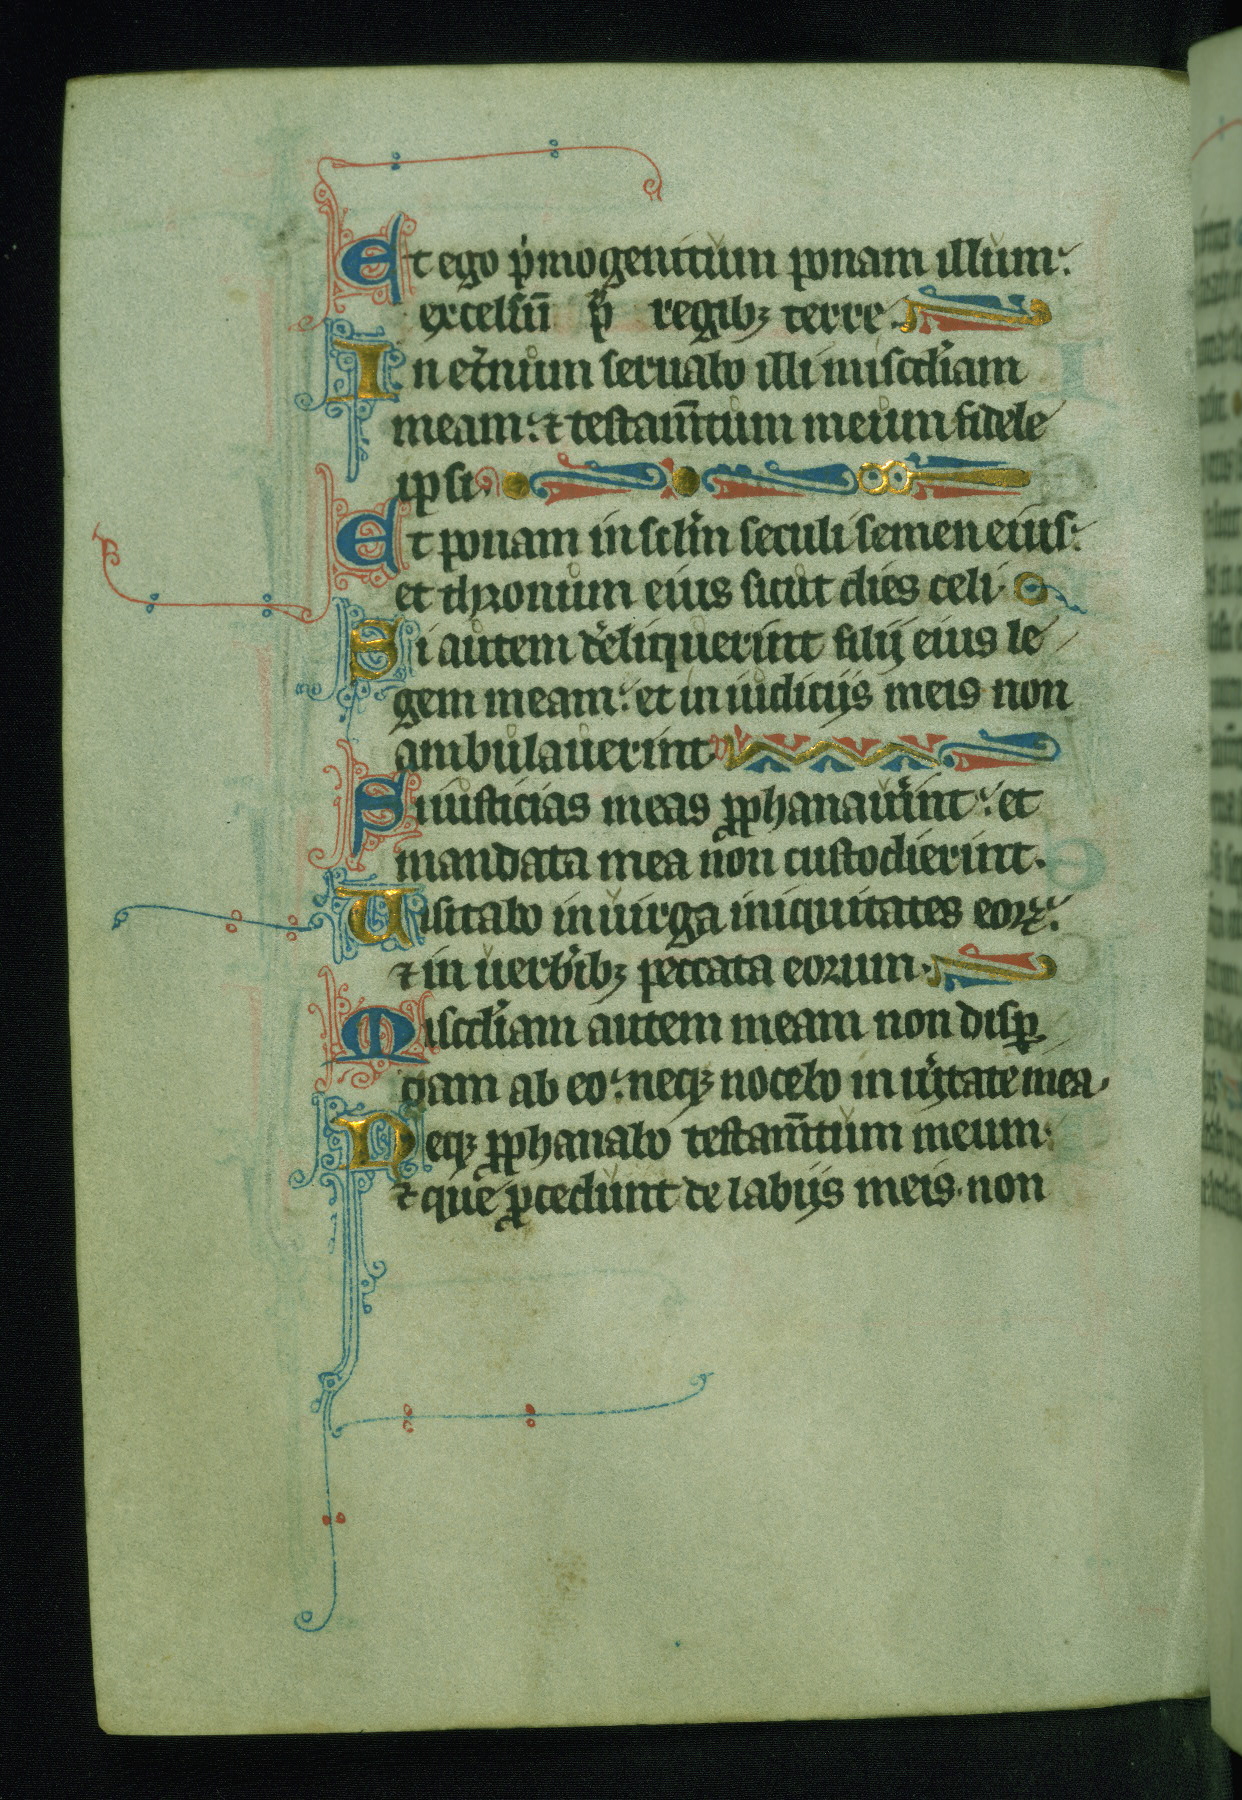 Et ego p̍mogenitum ponam illum:
excelsū p̄ regibꝫ terre.
In et̾num seruabo illi misc̾diam
meam: ⁊ testam̄tum meum fidele
ipsi.
Et ponam in scl̾m seculi semen eius:
et thronum eius sicut dies celi.
Si autem de̾liquerint filij eius le
gem meam: et in iudicijs meis non
ambulauerint
Si iusticias meas ꝓphanau̾int: et
mandata mea non custodierint.
Uisitabo in uirga iniquitates eoꝝ:
⁊ in uerb̾ibꝫ peccata eorum.
Misc̾diam autem meam non disꝑ
gam ab eo: neqꝫ nocebo in u̾itate mea.
Neqꝫ ꝓphanabo testam̄tum meum:
⁊ que ꝓcedunt de labijs meis non